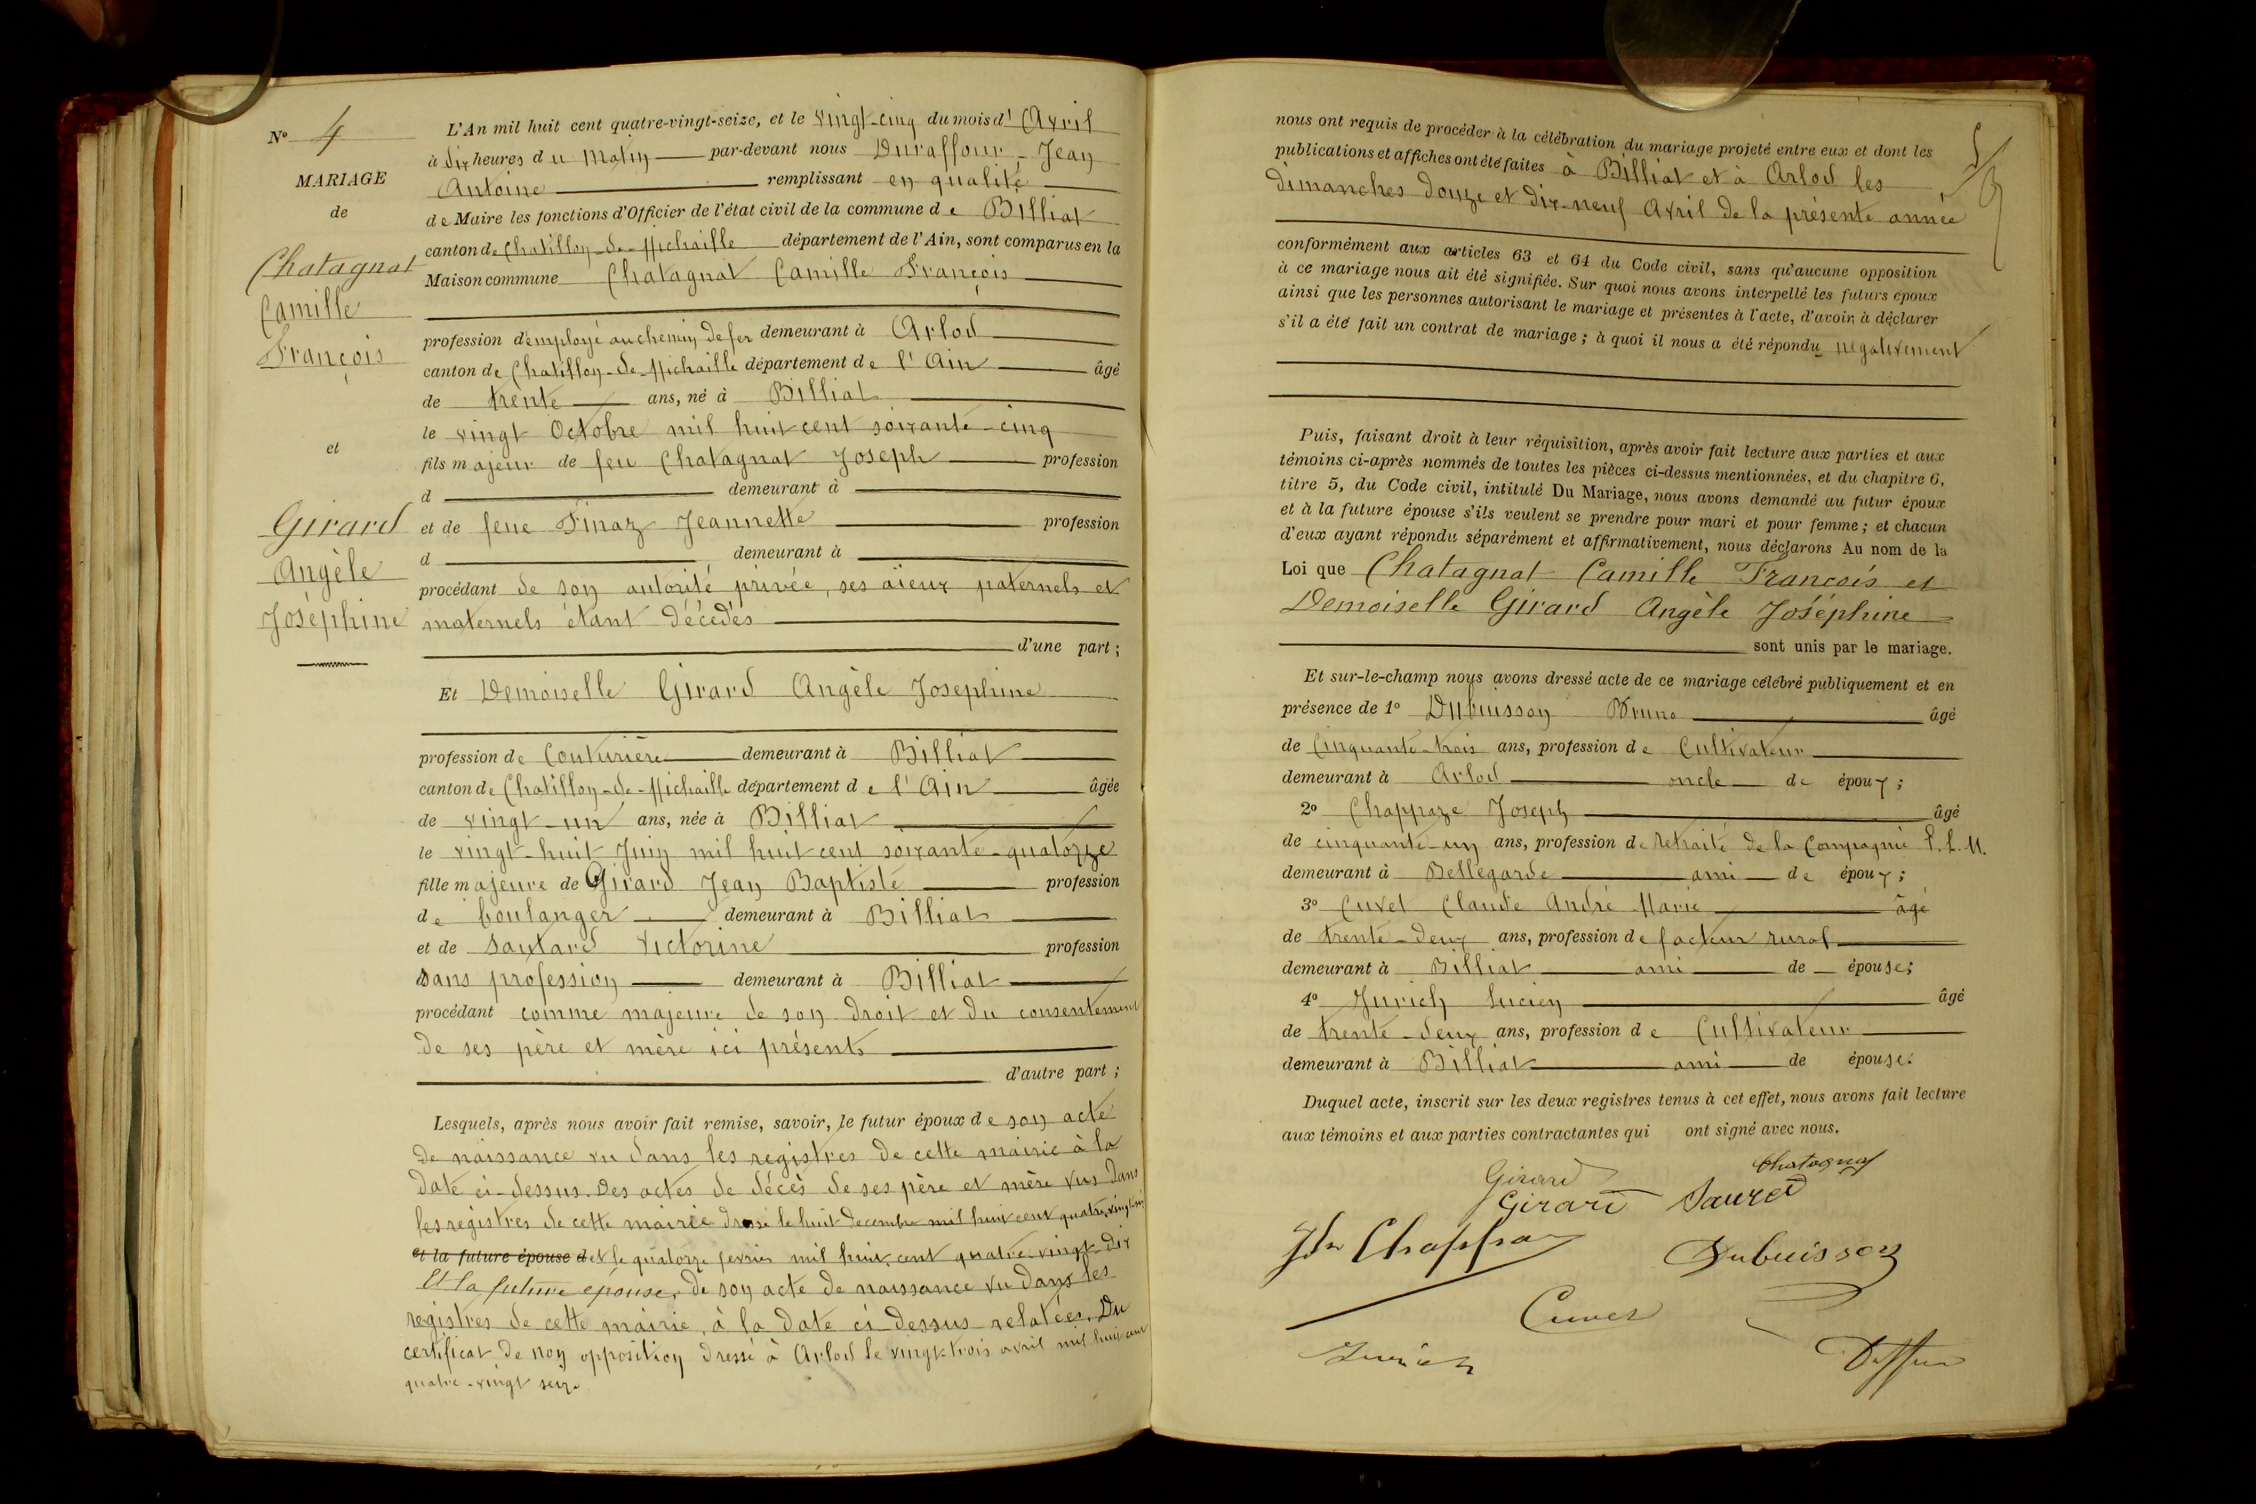 N° 4
MARIAGE
de
Chatagnat
Camille
François
et
Girard
Angèle
Joséphine
L'An mil huit cent quatre-vingt-seize, et le vingt-cinq du mois d'Avril
à dix heures du matin par-devant nous Duraffour Jean
Antoine remplissant en qualité
de Maire les fonctions d'Officier de l'état civil de la commune de Billiat
canton de Chatillon-de-Michaille département de l'Ain, sont comparus en la
Maison commune Chatagnat Camille François
profession d'employé au chemin de fer demeurant à Arlod
canton de Chatillon-de-Michaille département de l'Ain âgé
de trente ans, né à Billiat
le vingt Octobre mil huit cent soixante-cinq
fils majeur de feu Chatagnat Joseph profession
d demeurant à
et de feue Finaz Jeannette profession
d demeurant à
procédant de son autorité privée, ses aïeux paternels et
maternels étant décédés
d'une part ;
Et Demoiselle Girard Angèle Josephine
profession de Couturière demeurant à Billiat
canton de Chatillon-de-Michaille département de l'Ain âgée
de vingt-un ans, née à Billiat
le vingt-huit Juin mil huit cent soixante-quatorze
fille majeure de Girard Jean Baptiste profession
de boulanger demeurant à Billiat
et de Victorine profession
sans profession demeurant à Billiat
procédant comme majeure de son droit et du consentement
de ses père et mère ici présents
d'autre part ;
Lesquels, après nous avoir fait remise, savoir, le futur époux de son acte
de naissance vu dans les registres de cette mairie à la
date ci-dessus. Des actes de décès de ses père et mère vus dans
les registres de cette mairie dressé le huit decembre mil huit cent quatre-vingt
et la future épouse d et le quatorze fevrier mil huit cent quatre-vingt-dix
Et la future épouse, de son acte de naissance vu dans les
registres de cette mairie, à la date ci-dessus relatées. Du
certificat de non opposition dressé à Arlod le vingt-trois avril mil huit cent
quatre-vingt seize
nous ont requis de procéder à la célébration du mariage projeté entre eux et dont les
publications et affiches ont été faites à Billiat et à Arlod les
dimanches douze et dix-neuf Avril de la présente année
conformément aux articles 63 et 64 du Code civil, sans qu'aucune opposition
à ce mariage nous ait été signifiée. Sur quoi nous avons interpellé les futurs époux
ainsi que les personnes autorisant le mariage et présentes à l'acte, d'avoir à déclarer
s'il a été fait un contrat de mariage ; à quoi il nous a été répondu négativement
Puis, faisant droit à leur réquisition, après avoir fait lecture aux parties et aux
témoins ci-après nommés de toutes les pièces ci-dessus mentionnées, et du chapitre 6,
titre 5, du Code civil, intitulé Du Mariage, nous avons demandé au futur époux
et à la future épouse s'ils veulent se prendre pour mari et pour femme ; et chacun
d'eux ayant répondu séparément et affirmativement, nous déclarons Au nom de la
Loi que Chatagnat Camille François et
Demoiselle Girard Angèle Joséphine
sont unis par le mariage.
Et sur-le-champ nous avons dressé acte de ce mariage célébré publiquement et en
présence de 1° Dubuisson Bruno âgé
de Cinquante-trois ans, profession de Cultivateur
demeurant à Arlod oncle de époux ;
2° Chappaze Joseph âgé
de cinquante-un ans, profession de retraité de la Compagnie P. L. M.
demeurant à Bellegarde ami de époux ;
3° Cuvet Claude André Marie âgé
de trente-deux ans, profession de facteur rural
demeurant à Billiat ami de épouse ;
4° Jurich Lucien âgé
de trente-deux ans, profession de Cultivateur
demeurant à Billiat ami de épouse.
Duquel acte, inscrit sur les deux registres tenus à cet effet, nous avons fait lecture
aux témoins et aux parties contractantes qui ont signé avec nous.
Girard Chatagnat
Girard
Dubuisson
Cuvet